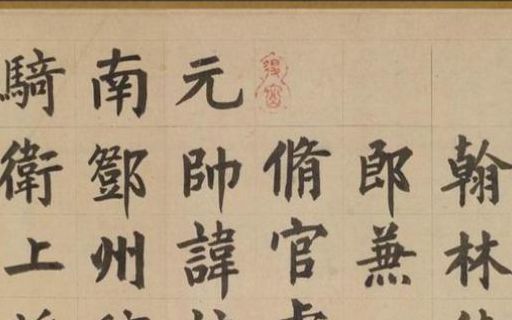 翰林
郎蒹
脩官
元帥諱
南鄧州
騎衛上